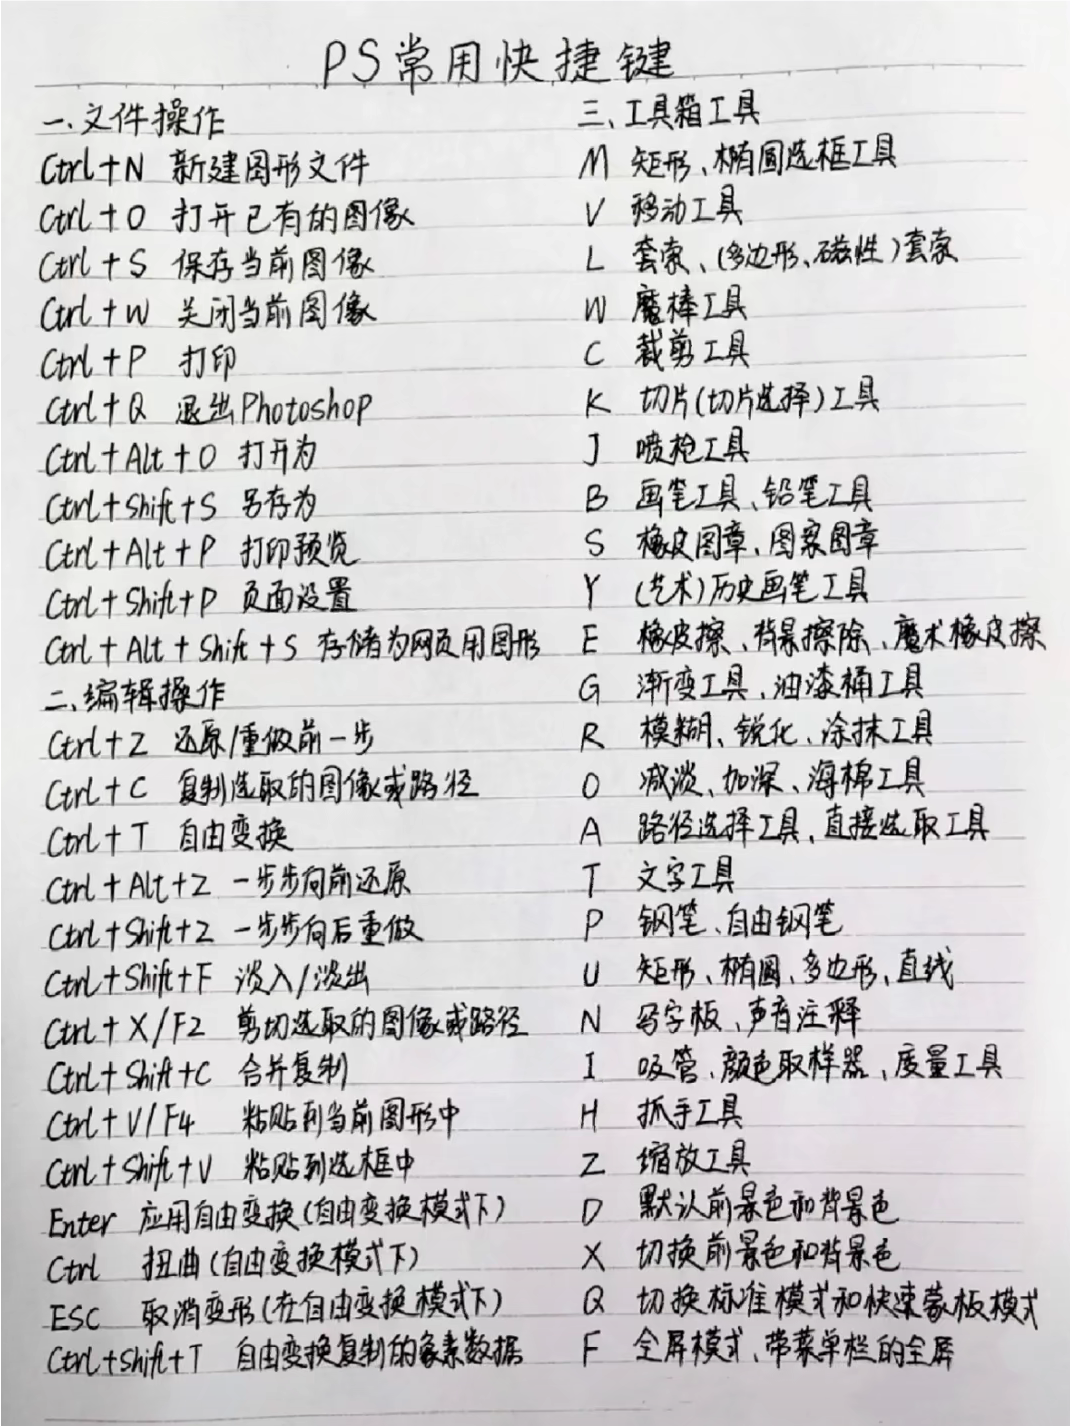 PS常用快捷键
一.文件操作
Ctrl+N 新建图形文件
Ctrl+O 打开已有的图像
Ctrl+S 保存当前图像
Ctrl+W 关闭当前图像
Ctrl+P 打印
Ctrl+Q 退出Photoshop
Ctrl+Alt+O 打开为
Ctrl+Shift+S 另存为
Ctrl+Alt+P 打印预览
Ctrl+Shift+P 页面设置
Ctrl+Alt+Shift+S 存储为网页用图形
二.编辑操作
Ctrl+Z 还原/重做前一步
Ctrl+C 复制选取的图像或路径
Ctrl+T 自由变换
Ctrl+Alt+Z 一步步向前还原
Ctrl+Shift+Z 一步步向后重做
Ctrl+Shift+F 淡入/淡出
Ctrl+X/F2 剪切选取的图像或路径
Ctrl+Shift+C 合并复制
Ctrl+V/F4 粘贴到当前图形中
Ctrl+Shift+V 粘贴到选框中
Enter 应用自由变换(自由变换模式下)
Ctrl 扭曲(自由变换模式下)
ESC 取消变形(在自由变换模式下)
Ctrl+Shift+T 自由变换复制的象素数据
三、工具箱工具
M 矩形、椭圆选框工具
V 移动工具
L 套索、(多边形、磁性)套索
W 魔棒工具
C 裁剪工具
K 切片(切片选择)工具
J 喷枪工具
B 画笔工具、铅笔工具
S 橡皮图章、图案图章
Y (艺术)历史画笔工具
E 橡皮擦、背景擦除、魔术橡皮擦
G 渐变工具、油漆桶工具
R 模糊、锐化、涂抹工具
O 减淡、加深、海棉工具
A 路径选择工具、直接选取工具
T 文字工具
P 钢笔、自由钢笔
U 矩形、椭圆、多边形、直线
N 写字板、声音注释
I 吸管、颜色取样器、度量工具
H 抓手工具
Z 缩放工具
D 默认前景色和背景色
X 切换前景色和背景色
Q 切换标准模式和快速蒙板模式
F 全屏模式、带菜单栏的全屏